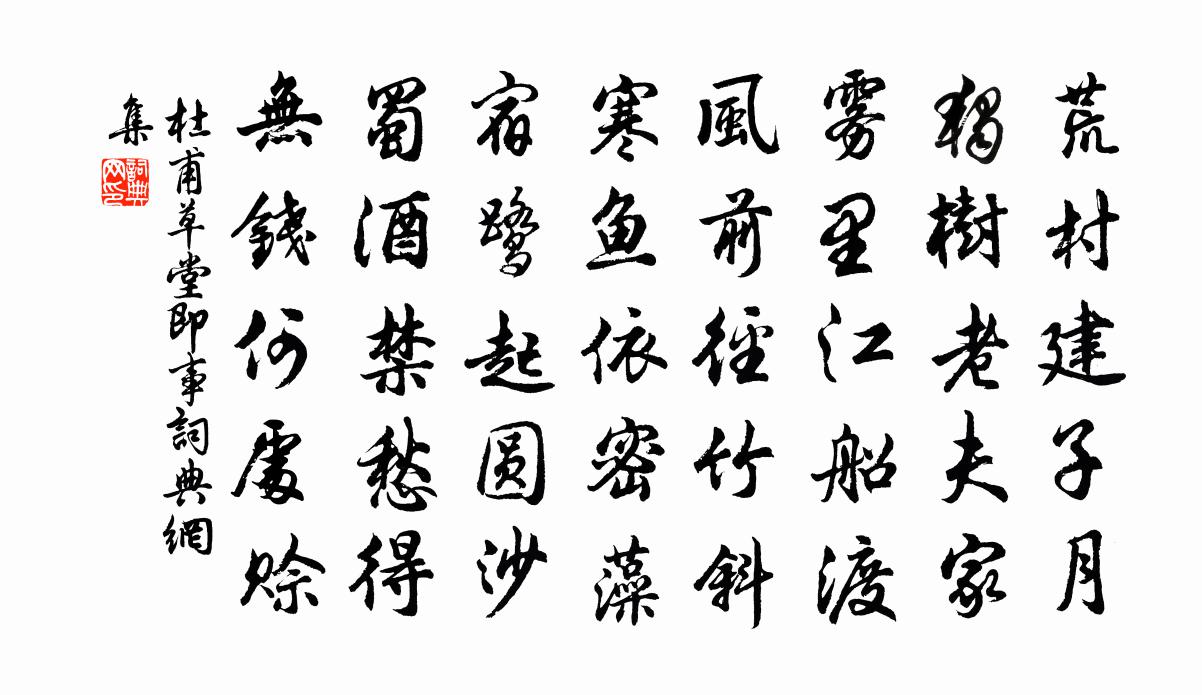 荒村建子月
獨樹老夫家
雾里江船渡
風前径竹斜
寒鱼依密藻
宿鹭起圆沙
蜀酒禁愁得
無錢何處赊
杜甫草堂即事詞典網
集
詞典
网印